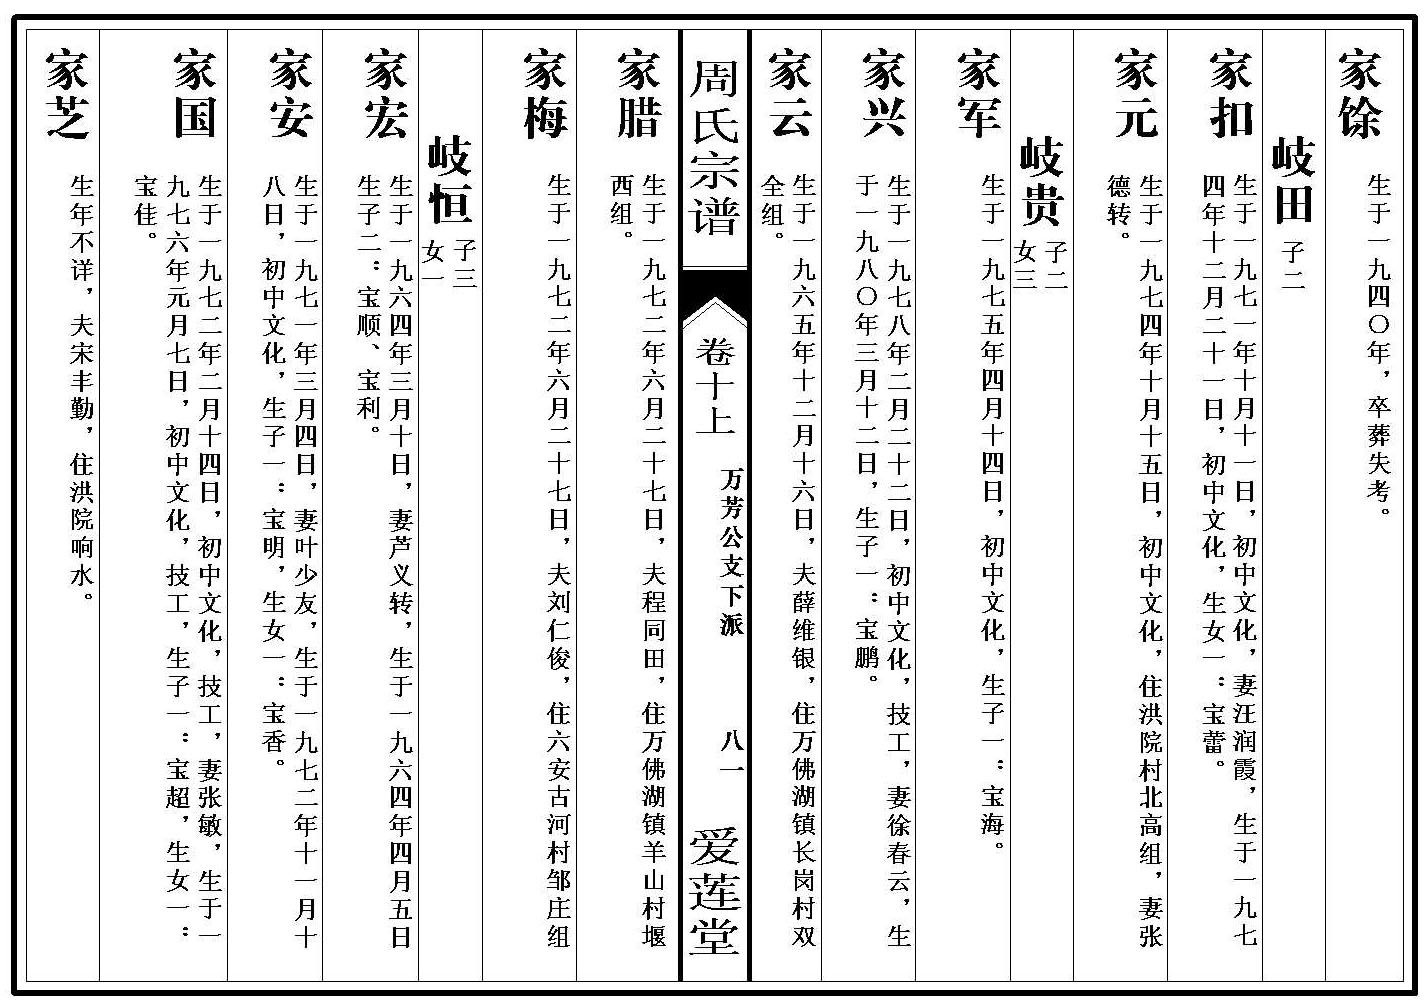 家馀
生于一九四〇年，卒葬失考。
岐田
子二
家扣
生于一九七一年十月十一日，初中文化，妻汪润霞，生于一九七
四年十二月二十一日，初中文化，生女一：宝蕾。
家元
生于一九七四年十月十五日，初中文化，住洪院村北高组，妻张
德转。
岐贵
子二
女三
家军
生于一九七五年四月十四日，初中文化，生子一：宝海。
家兴
生于一九七八年二月二十二日，初中文化，技工，妻徐春云，生
于一九八〇年三月十二日，生子一：宝鹏。
家云
生于一九六五年十二月十六日，夫薛维银，住万佛湖镇长岗村双
全组。
周氏宗谱
卷十上
万芳公支下派
八一
爱莲堂
家腊
生于一九七二年六月二十七日，夫程同田，住万佛湖镇羊山村堰
西组。
家梅
生于一九七二年六月二十七日，夫刘仁俊，住六安古河村邹庄组
岐恒
子三
女一
家宏
生于一九六四年三月十日，妻芦义转，生于一九六四年四月五日
生子二：宝顺、宝利。
家安
生于一九七一年三月四日，妻叶少友，生于一九七二年十一月十
八日，初中文化，生子一：宝明，生女一：宝香。
家国
生于一九七二年二月十四日，初中文化，技工，妻张敏，生于一
九七六年元月七日，初中文化，技工，生子一：宝超，生女一：
宝佳。
家芝
生年不详，夫宋丰勤，住洪院响水。